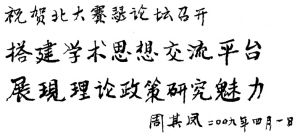 祝贺北大赛瑟论坛召开
搭建学术思想交流平台
展现理论政策研究魅力
周其凤 二〇〇九年四月一日